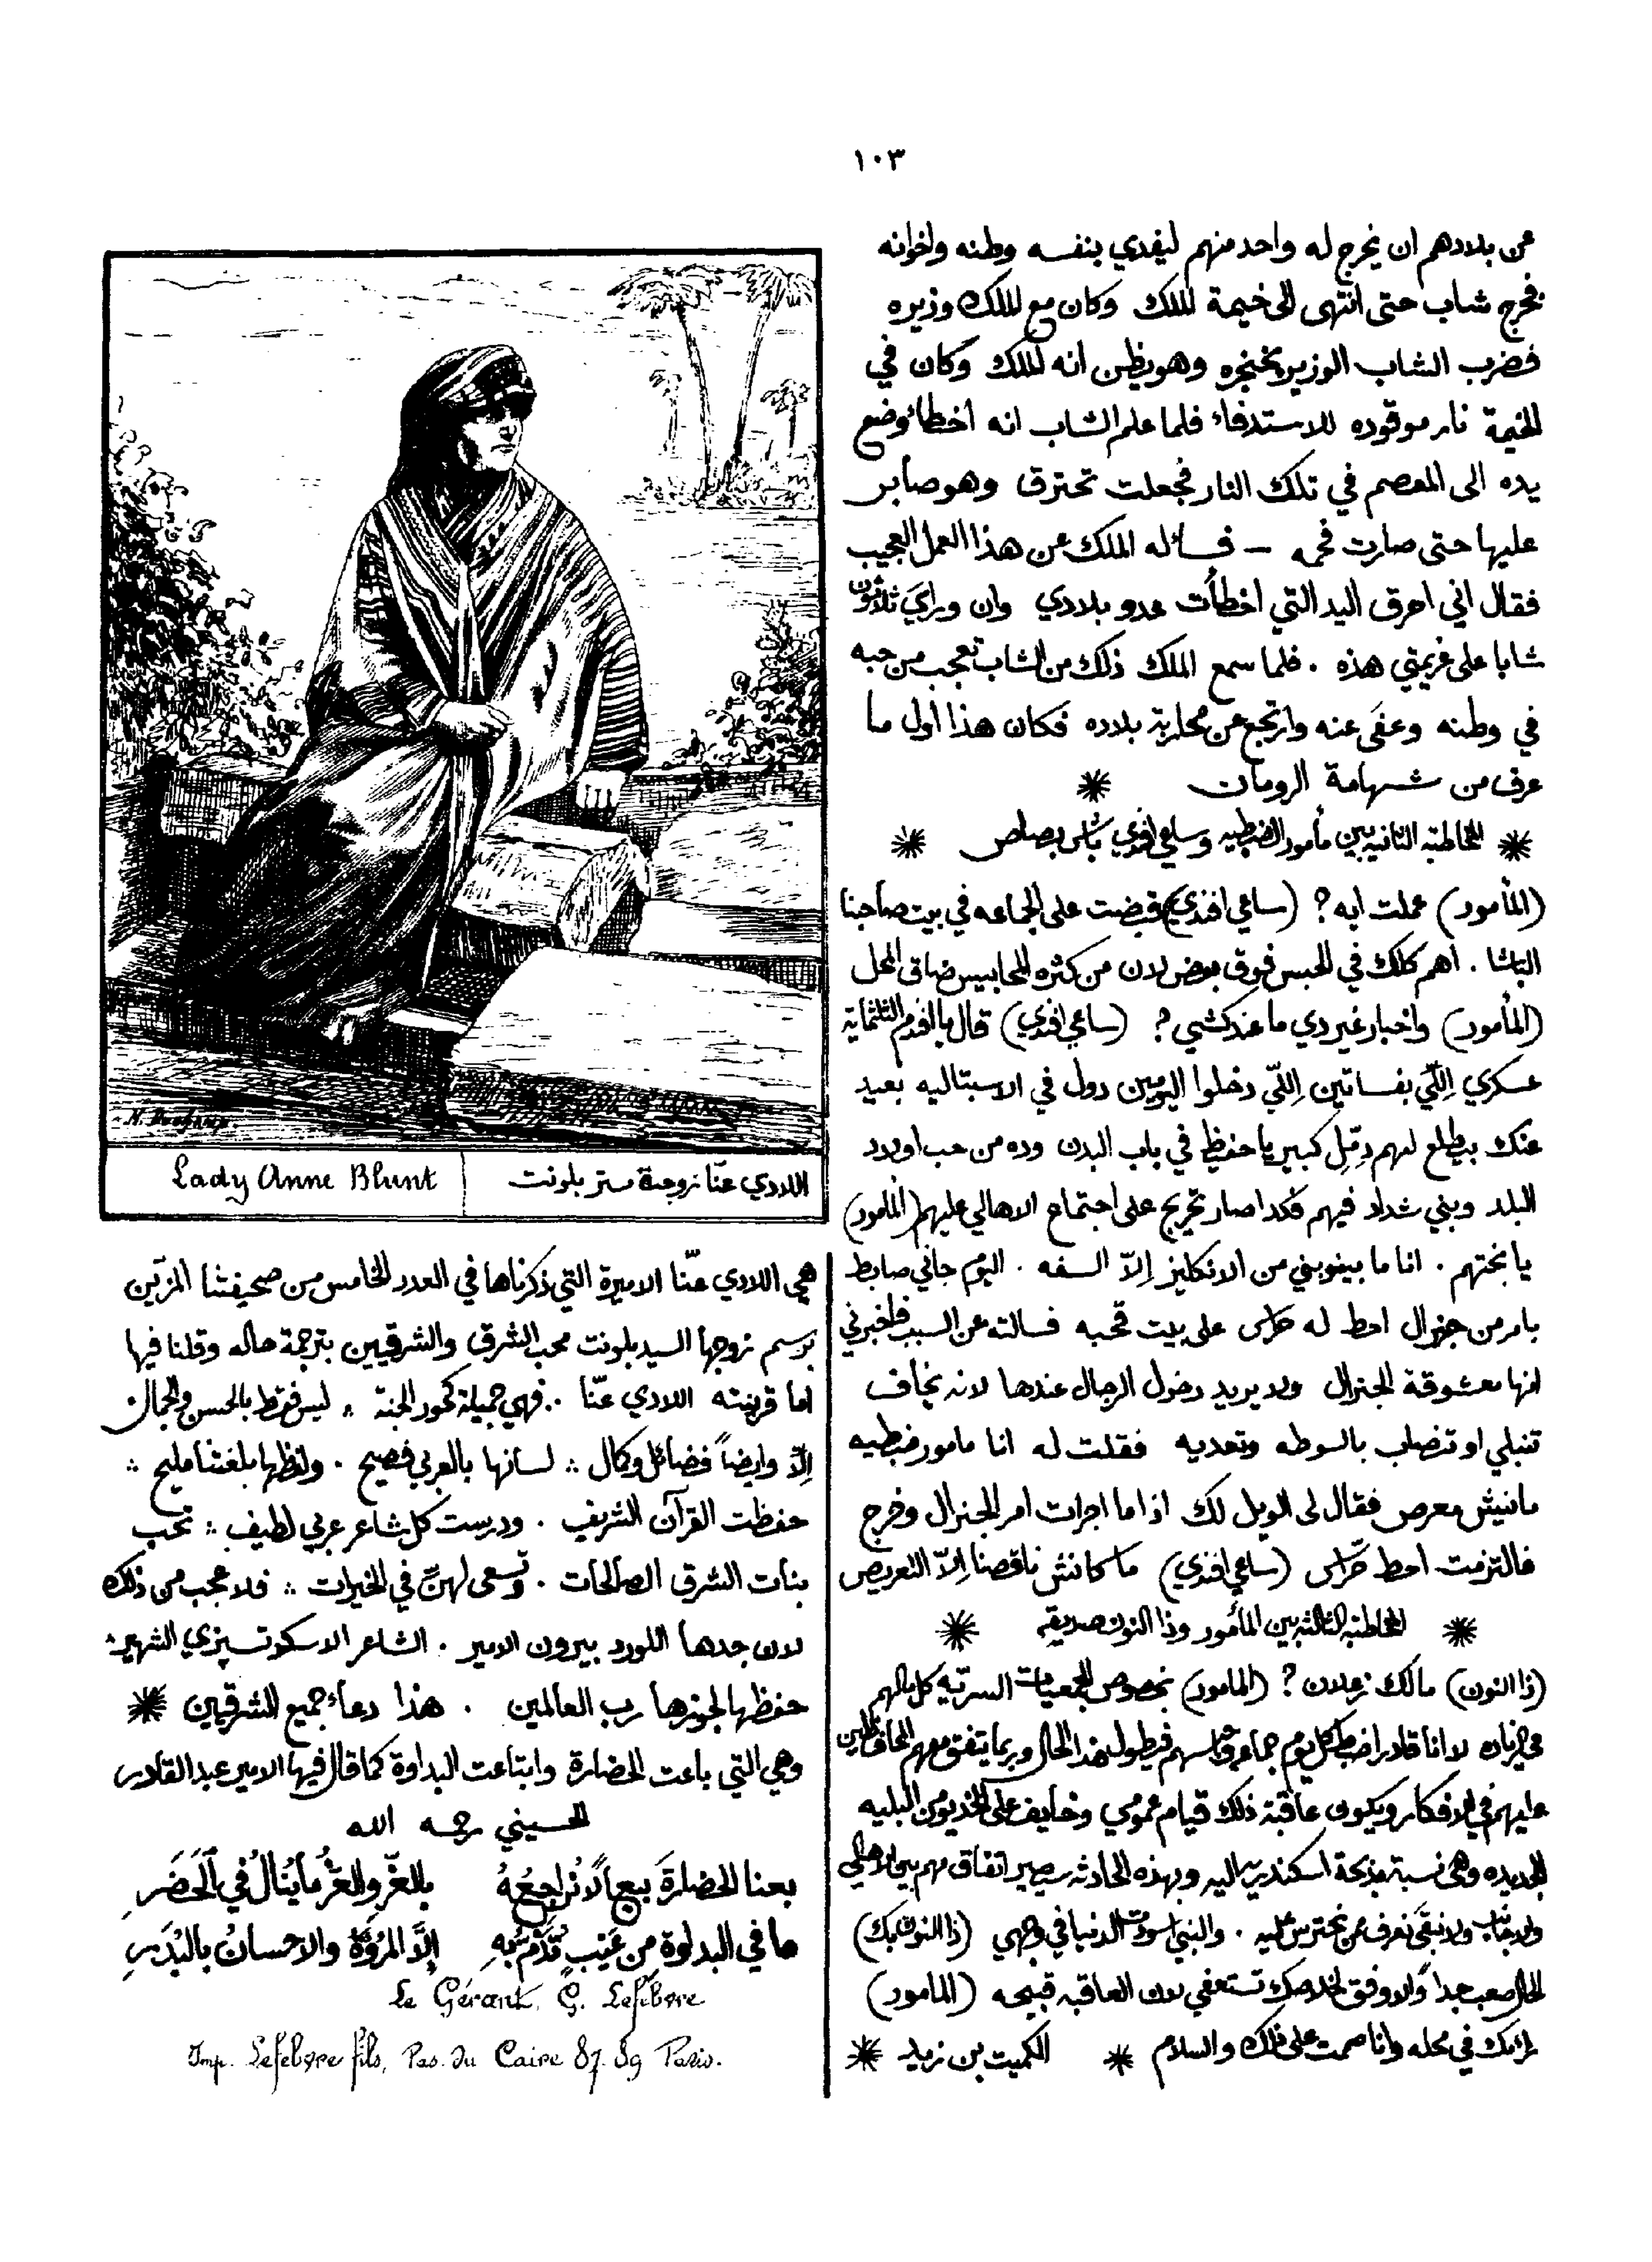 ١٠٣
عن بلادهم ان يخرج له واحد منهم ليفدي بنفسه وطنه واخوانه
فخرج شاب حتى انتهى الى خيمة الملك وكان مع الملك وزيره
فضرب الشاب الوزير بخنجره وهو يظن انه الملك وكان في
الخيمة نار موقوده للاستدفاء فلما علم الشاب انه اخطاء وضع
يده الى المعصم في تلك النار فجعلت تحترق وهو صابر
عليها حتى صارت فحمه – فسأله الملك عن هذا العمل العجيب
فقال اني احرق اليد التي اخطأت عدو بلادي وان وراي ثلاثون
شابا على عزيمتي هذه . فلما سمع الملك ذلك من الشاب تعجب من حبه
في وطنه وعفى عنه وارتجع عن محاربة بلاده فكان هذا اول ما
عرف من شهامة الرومان *
* المخاطبه الثانيه بين مأمور الضبطيه وساعي افندي باش بصاص *
(المأمور) عملت ايه ? (ساعي افندي) قبضت على الجماعه في بيت صاحبنا
الباشا . اهم كلك في الحبس فوق بعض لان من كثره المحابيس ضاق المحل
(المأمور) واخبار غير دي ما عندكشي ? (ساعي افندي) قال يا افندم الثلثماية
عسكري اللّي بفساتين اللّي دخلوا اليومين دول في الاسبتاليه بعيد
عنك بيطلع لهم دمّل كبير يا حفيظ في باب البدن وده من حب اولاد
البلد وبني شداد فيهم فكدا صار تحريج على اجتماع الاهالي عليهم (المأمور)
يا بختهم . انا ما بينوبني من الانكليز إلاّ السفه . اليوم جاني ضابط
بامر من جنرال احط له حراس على بيت قحبه فسالته عن السبب فاخبرني
انها معشوقة الجنرال ولا يريد دخول الرجال عندها لانه يخاف
تنبلي او تنصاب بالسوطه وتعديه فقلت له انا مامور ضبطيه
مانيش معرص فقال لى الويل لك اذا ما اجرات امر الجنرال وخرج
فالتزمت احط حرّاس (ساعي افندي) ما كانش ناقصنا إلاّ التعريص
* المخاطبه الثالثه بين المأمور وذا النون صديقه *
(ذا النون) مالك زعلان ? (المامور) بخصوص الجمعيات السريه كل مالهم
في زياده لا انا قادر اضبط كل يوم جماعه واحبسهم فيطول هذا الحال وربما يتفق معهم المحافظين
عليهم في الافكار ويكون عاقبة ذلك قيام عمومي وخايف على الخديوي من البليه
الجديده وهي نسبة مذبحة اسكندريه اليه وبهذه الحادثه سيصير اتفاق مهم بين الاهالي
والاجانب ولا نبقى نعرف من نحترس عليه . والنبي اسودت الدنيا في وجهي (ذا النون بك)
الحال صعب جداً والاوفق لخلاصك تستعفي لان العاقبه قبيحه (المامور)
رايك في محله وانا صممت على ذلك والسلام * الكميت بن زيد *
Lady Anne Blunt
اللادي عنّا زوجة ستر بلونت
هي اللادي عنّا الاميرة التي ذكرناها في العدد الخامس من صحيفتنا المزيّن
برسم زوجها السيد بلونت محب الشرق والشرقيين بترجمة حاله وقلنا فيها
اما قرينته اللادي عنّا .. فهي جميلة كحور الجنة .. ليس فقط بالحسن والجمال .
إلاّ وايضاً فضائل وكمال .. لسانها بالعربي فصيح . ولفظها بلغتنا مليح ..
حفظت القرآن الشريف . ودرست كل شاعر عربي لطيف .. تحب
بنات الشرق الصالحات . وتسعى لهنّ في الخيرات .. فلا عجب من ذلك
لان جدها اللورد بيرون الامير . الشاعر الاسكوتسيزي الشهير .
حفظها لجوزها رب العالمين . هذا دعاء جميع الشرقيين *
وهي التي باعت الحضارة وابتاعت البداوة كما قال فيها الامير عبد القادر
الحسيني رحمه الله
بعنا الحضارةَ بيعاً لا نُراجِعُهُ بالعزّ والعزُّ ما يُنالُ في اَلحَضَرِ
ما في البداوة من عَيْبٍ تُذَمُّ بِهِ إلاَّ المروّةُ والاحسانُ بالبُدَرِ
Le Gérant, G. Lefebvre
Imp. Lefebvre fils, Pas. du Caire 87. 89 Paris.